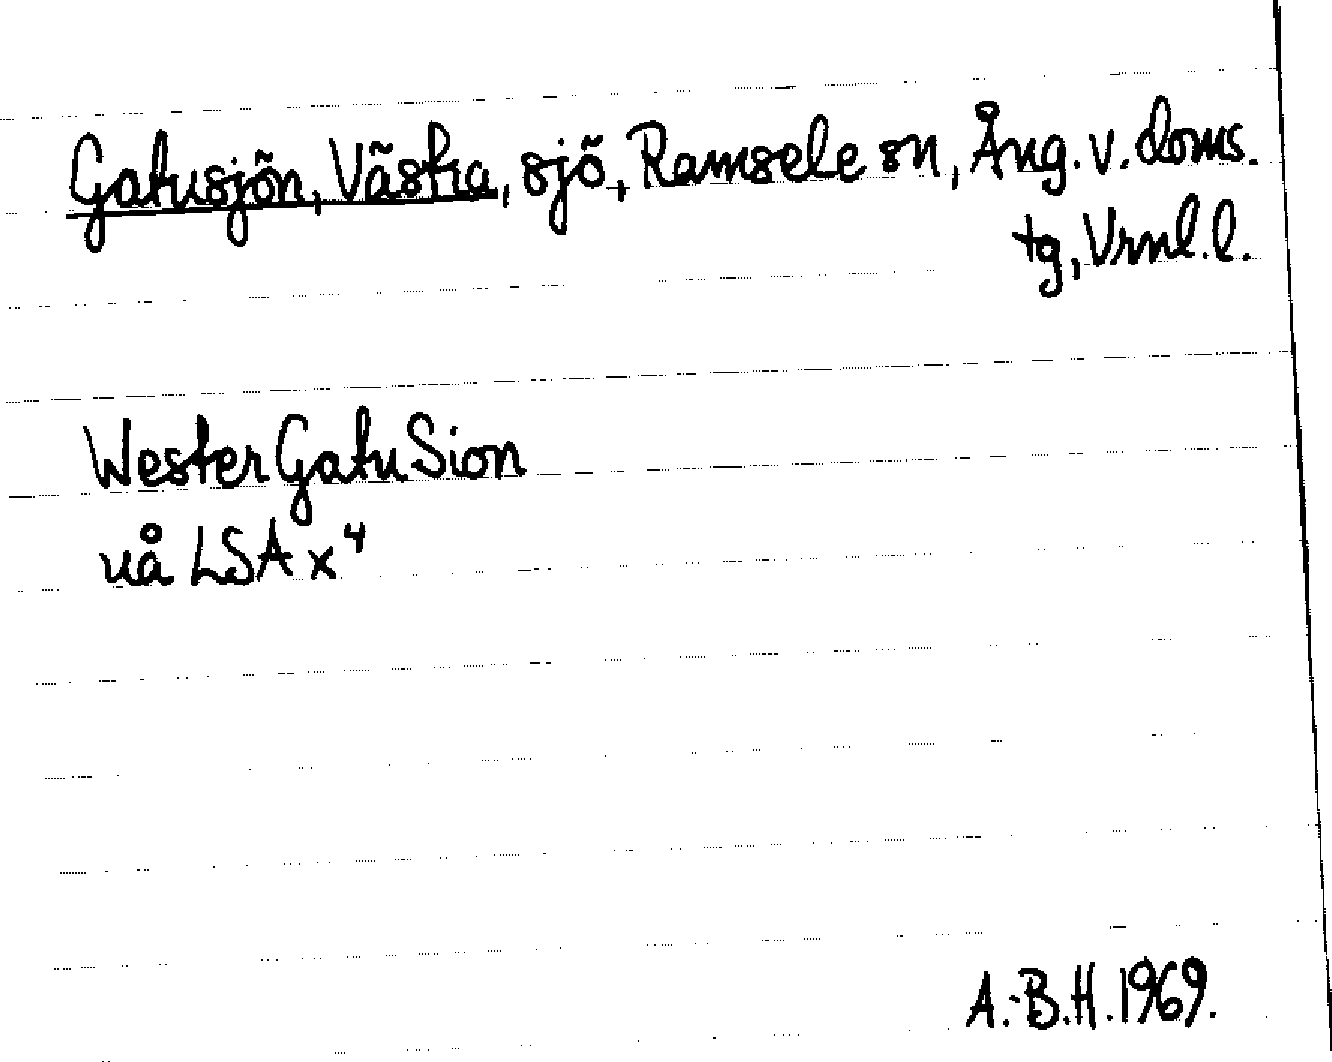 Gatusjön, Västra, sjö, Ramsele sn, Ång. v. doms.
tg, Vrnl. l.
WesterGatuSion
uå LSA x⁴
A.-B.H. 1969.